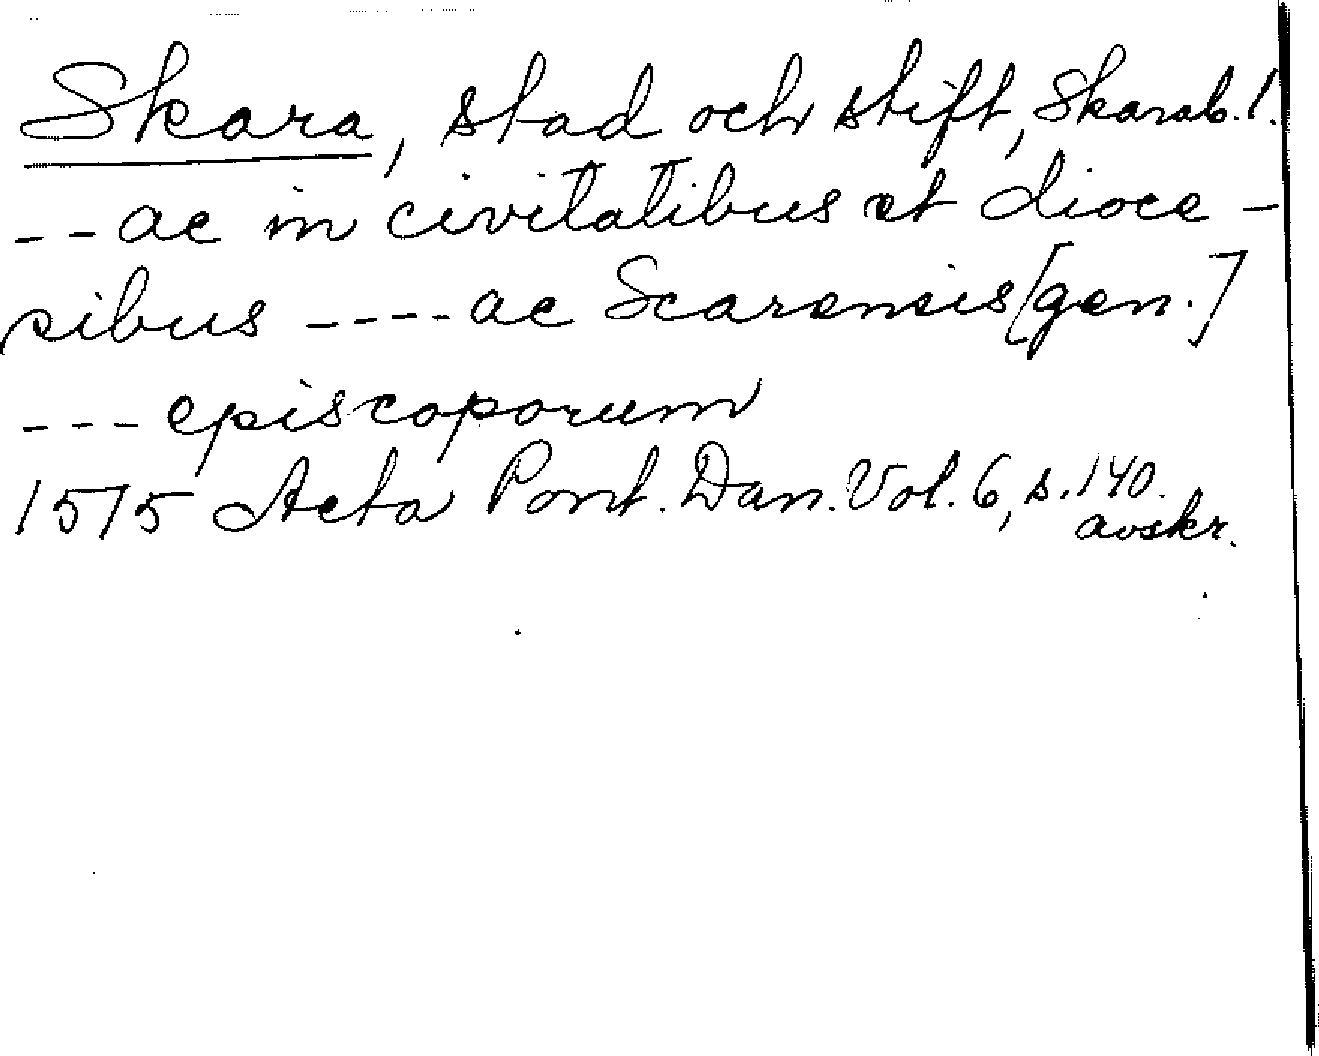 Skara, stad och stift, Skarab. l.
-- ac in civitatibus et dioce-
sibus ---- ac Scarensis [gen.]
--- episcoporum
1515 Acta Pont. Dan. Vol. 6, s. 140.
avskr.